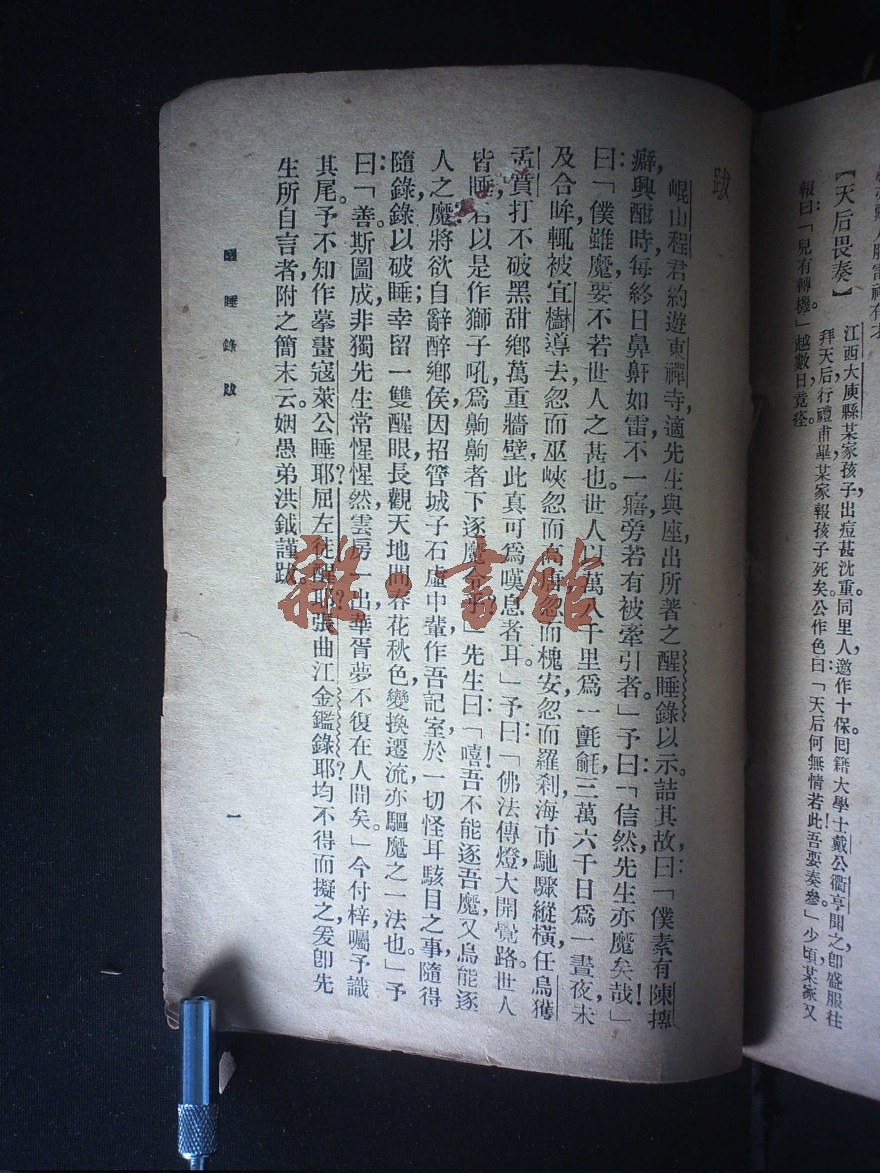 【天后畏奏】
江西大庾縣某家孩子出痘甚沈重。同里人邀作十保。回籍大學士戴公衢亨聞之,卽盛服往
拜天后,行禮甫畢,某家報孩子死矣。公作色曰:「天后何無情若此!吾要奏參。」少頃,某家又
報曰:「見有轉機。」越數日竟痊。
跋
崐山程君約遊東禪寺,適先生與座,出所著之醒睡錄以示。詰其故,曰:「僕素有陳摶
癖,興酣時每終日鼻鼾如雷,不一寤,旁若有被牽引者。」予曰:「信然,先生亦魔矣哉!」
曰:「僕雖魔,要不若世人之甚也。世人以萬八千里爲一氈㲪,三萬六千日爲一晝夜,未
及合眸,輒被宜櫴導去,忽而巫峽,忽而高,忽而槐安,忽而羅刹海市,馳驟縱橫,任烏獲
孟賁打不破黑甜鄉萬重牆壁,此真可爲嘆息者耳。」予曰:「佛法傳燈,大開覺路,世人
皆睡,君以是作獅子吼,爲齁齁者下逐魔令乎?」先生曰:「嘻!吾不能逐吾魔,又烏能逐
人之魔?將欲自辭醉鄉侯,因招管城子、石虛中輩作吾記室,於一切怪耳駭目之事,隨得
隨錄,錄以破睡;幸留一雙醒眼,長觀天地間春花秋色,變換遷流,亦驅魔之一法也。」予
曰:「善。斯圖成,非獨先生常惺惺然,雲房一出,華胥夢不復在人間矣。」今付梓,囑予識
其尾。予不知作摹畫寇萊公睡耶?屈左徒醒耶?張曲江金鑑錄耶?均不得而擬之,爰卽先
生所自言者,附之簡末云。姻愚弟洪鉞謹跋。
醒睡錄跋
一
雜·書館